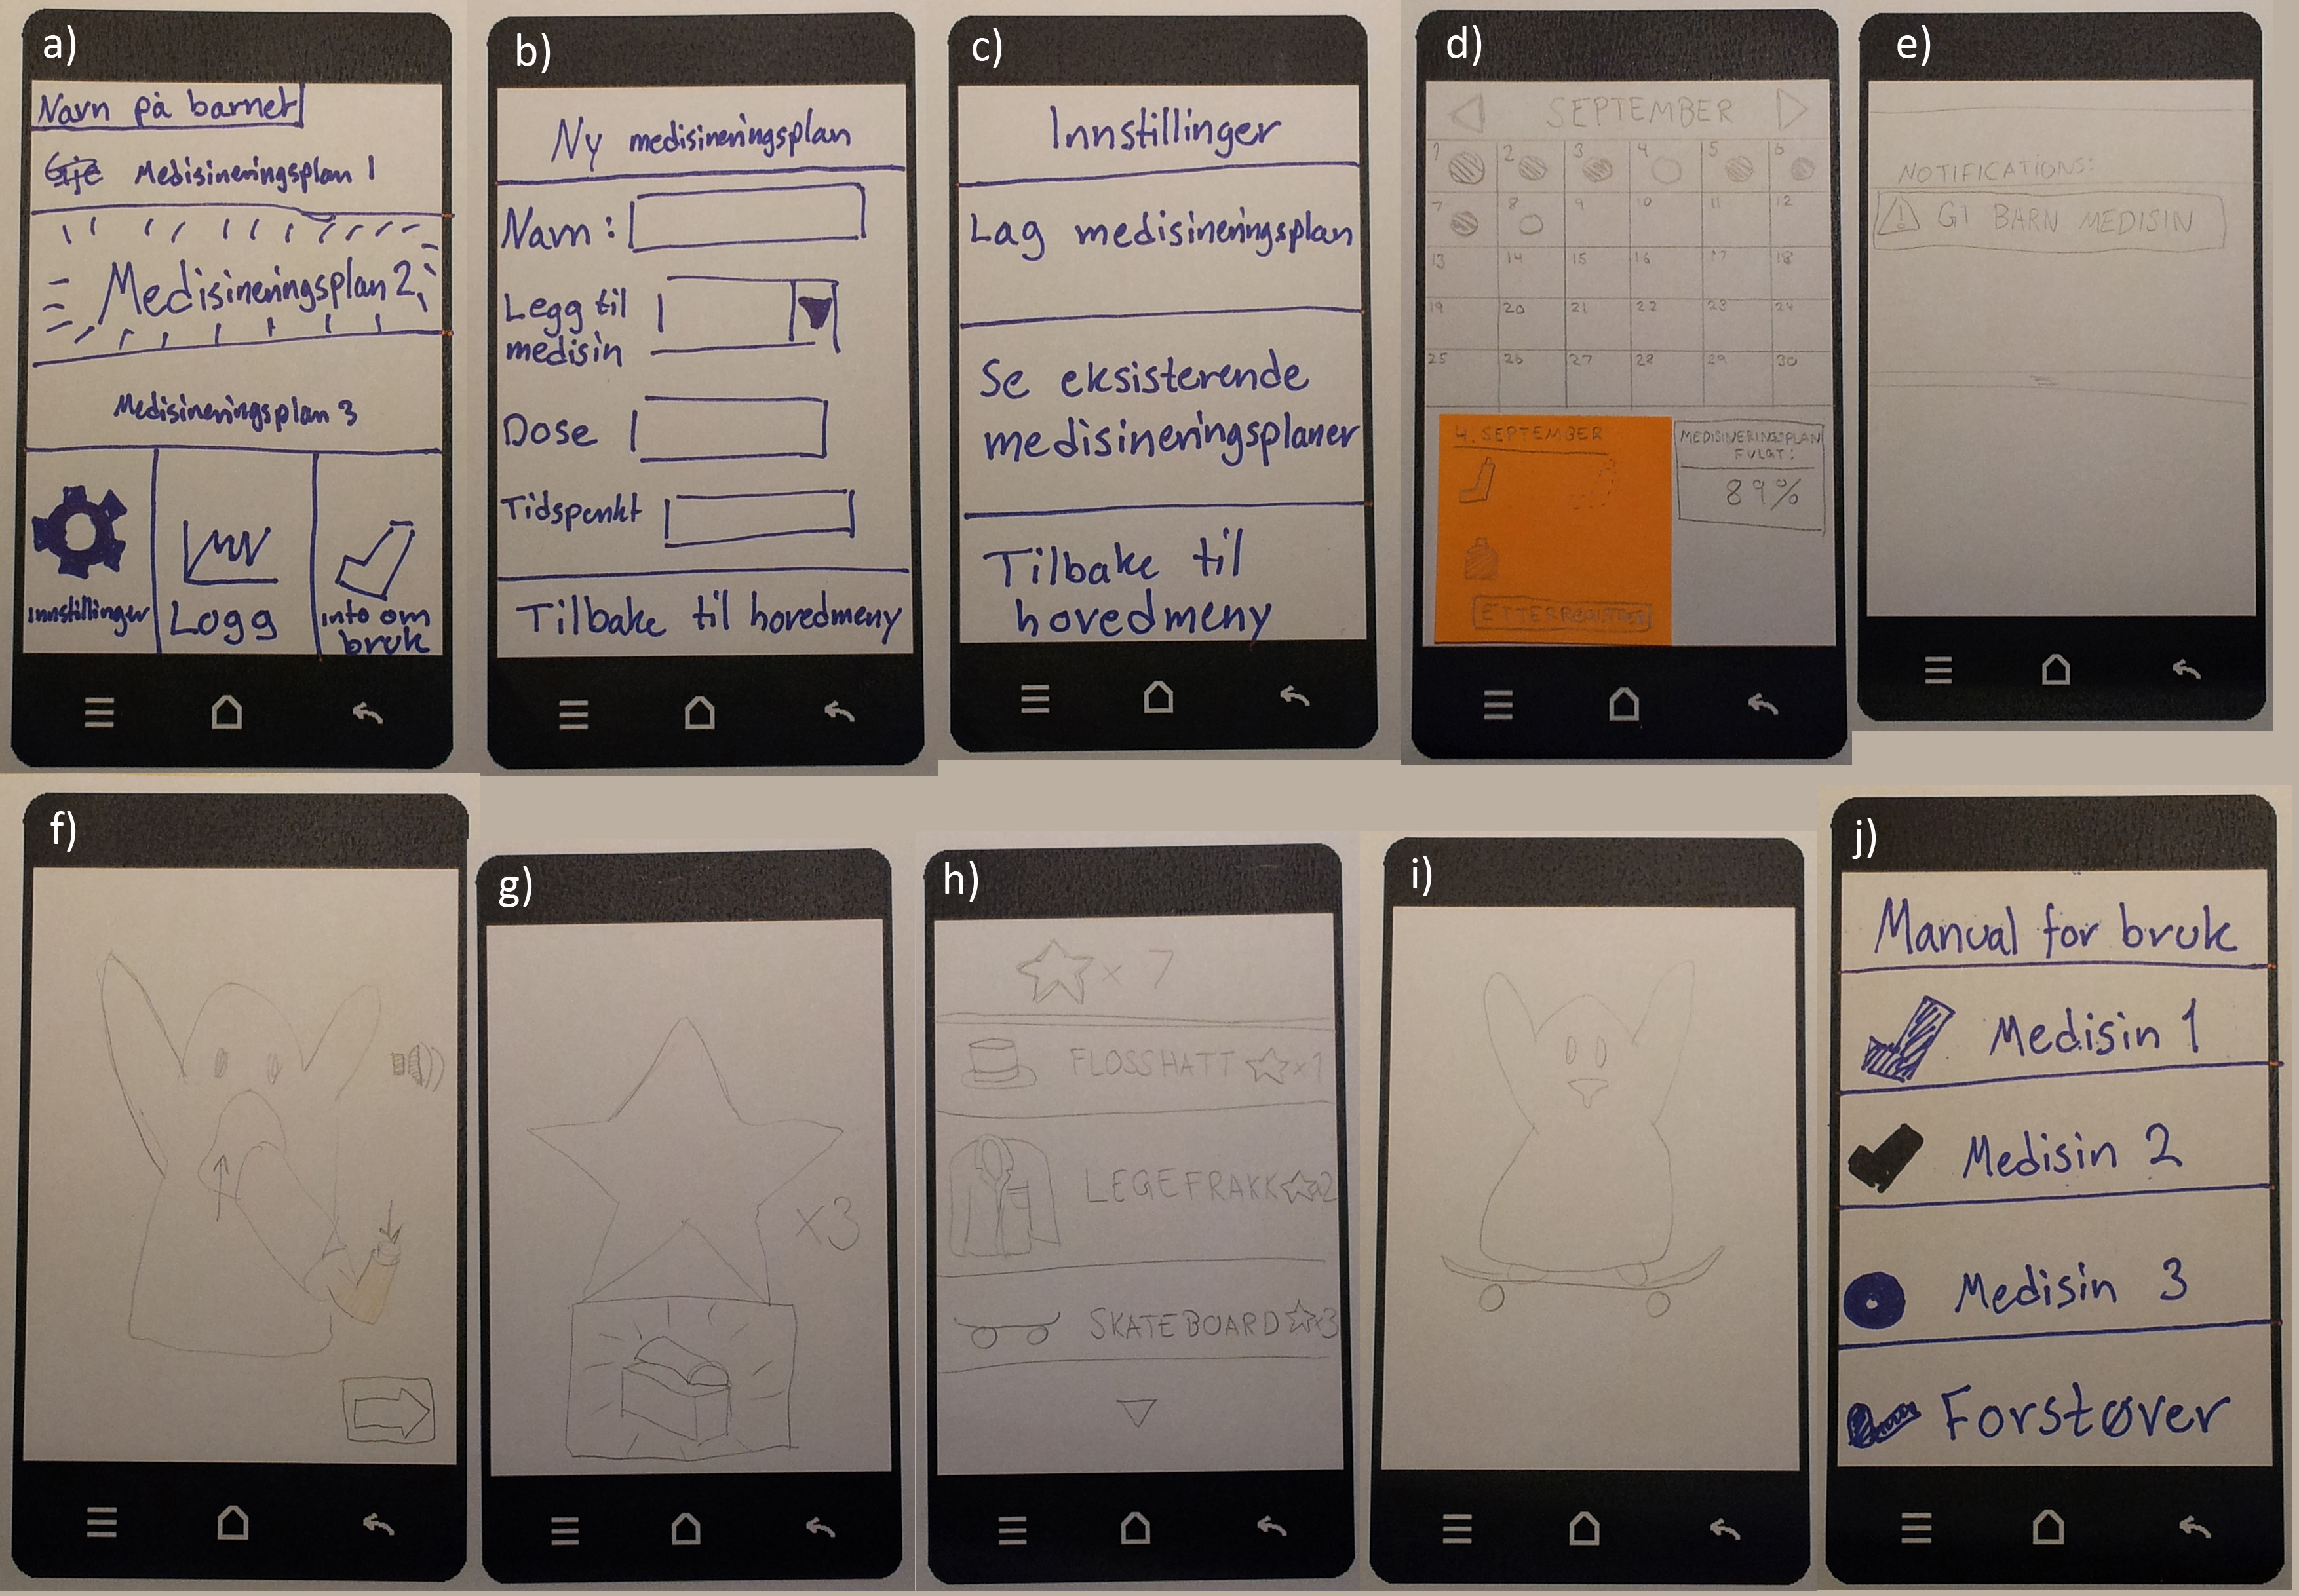 a)
Navn på barnet
Gje Medisineringsplan 1
Medisineringsplan 2
Medisineringsplan 3
Innstillinger
Logg
info om
bruk
b)
Ny medisineringsplan
Navn:
Legg til
medisin
Dose
Tidspunkt
Tilbake til hovedmeny
c)
Innstillinger
Lag medisineringsplan
Se eksisterende
medisineringsplaner
Tilbake til
hovedmeny
d)
SEPTEMBER
1 2 3 4 5 6
7 8 9 10 11 12
13 14 15 16 17 18
19 20 21 22 23 24
25 26 27 28 29 30
4. SEPTEMBER
ETTERREGISTRER
MEDISINERINGSPLAN
FULGT:
89%
e)
NOTIFICATIONS:
! GI BARN MEDISIN
f)
g)
x3
h)
x 7
FLOSSHATT x1
LEGEFRAKK x2
SKATEBOARD x3
i)
j)
Manual for bruk
Medisin 1
Medisin 2
Medisin 3
Forstøver